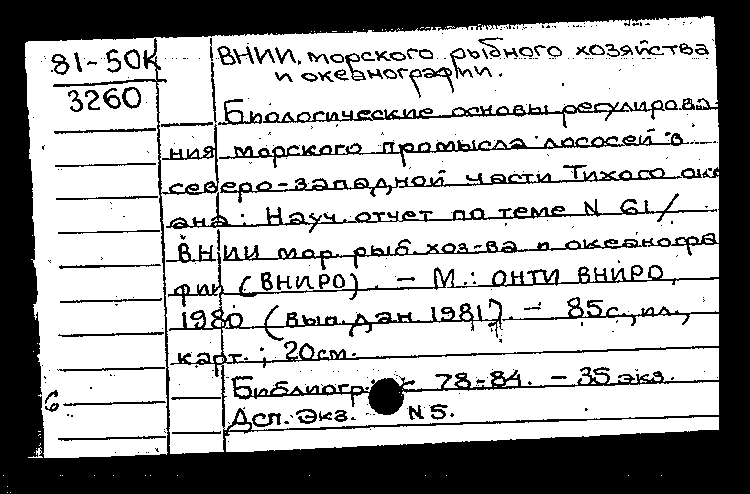 81-50К
3260
ВНИИ. морского рыбного хозяйства
и океанографии.
Биологические основы регулирова-
ния морского промысла лососей в
северо-западной части Тихого оке
ана: Науч. отчет по теме N 61/
ВНИИ мор. рыб. хоз-ва и океаногра
фии (ВНИРО). — М.: ОНТИ ВНИРО,
1980 (вып. дан. 1981). — 85 с., ил.,
карт.; 20 см.
Библиогр.: с. 78-84. — 35 экз.
Дсп. Экз. N 5.